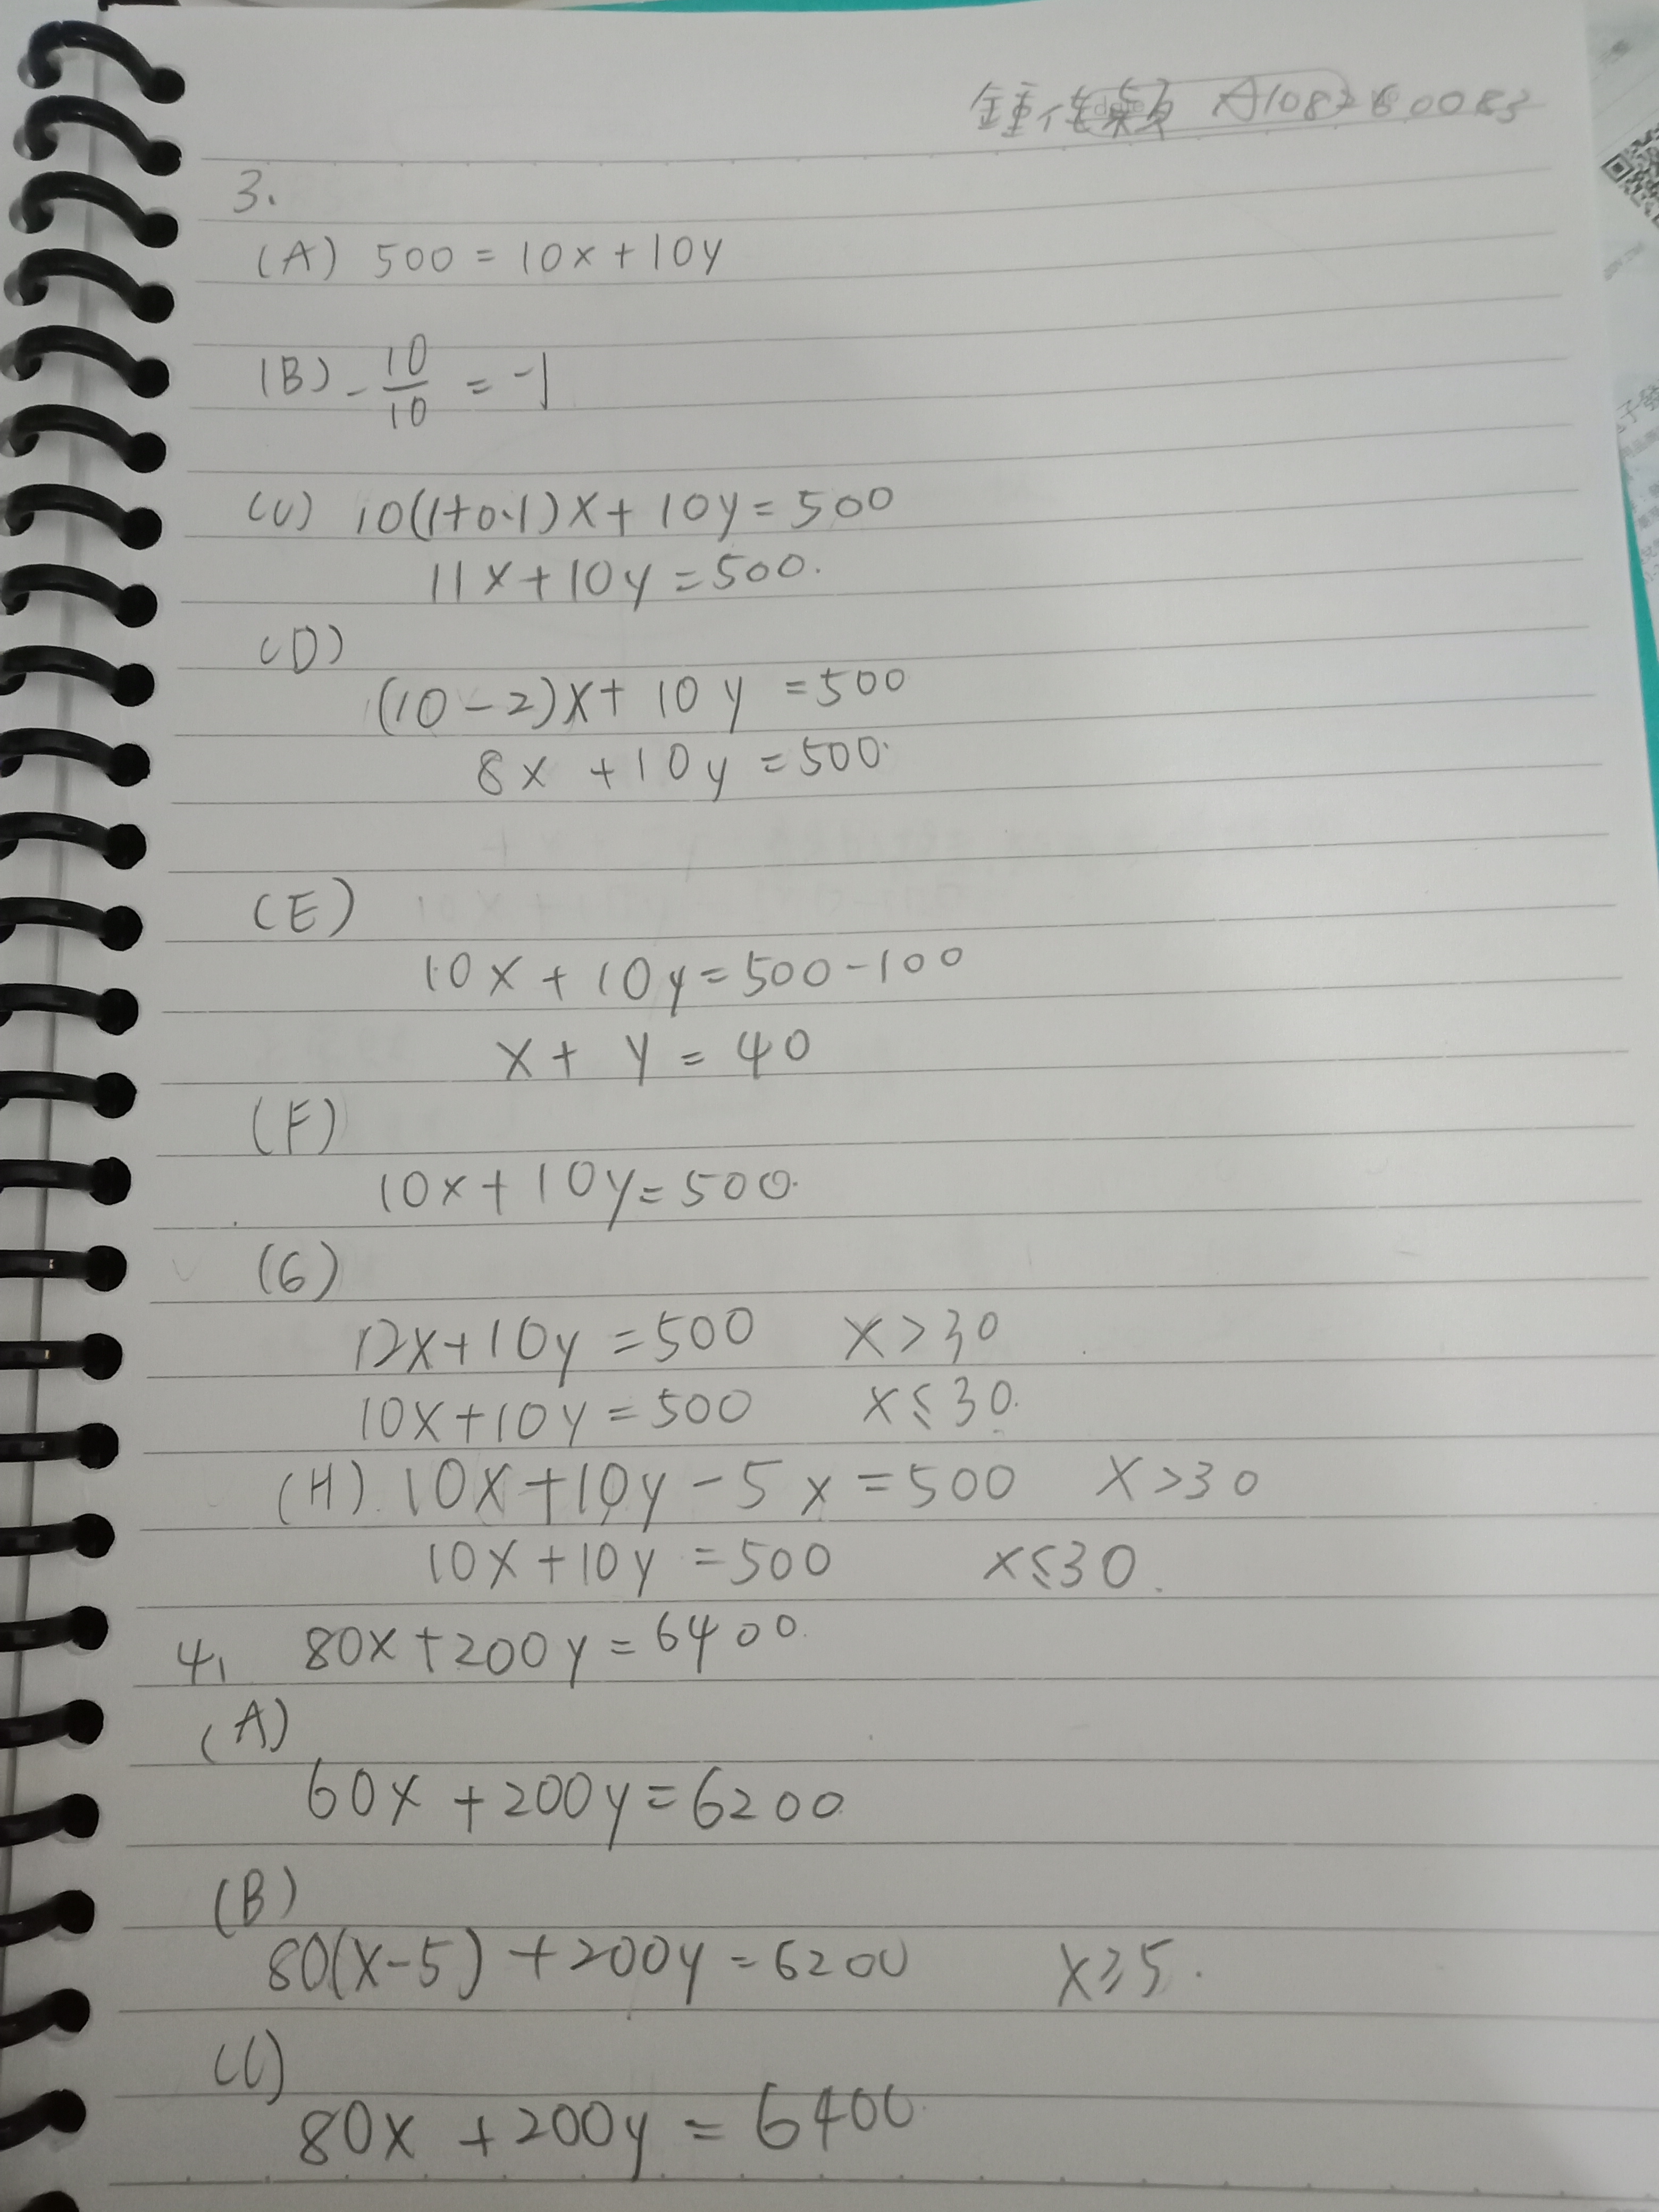 A108260083
3.
(A) 500 = 10x + 10y
(B) - 10/10 = -1
(C) 10(1+0.1)x + 10y = 500
11x + 10y = 500.
(D)
(10-2)x + 10y = 500
8x + 10y = 500.
(E)
10x + 10y = 500-100
x + y = 40
(F)
10x + 10y = 500.
(G)
12x + 10y = 500 x > 30
10x + 10y = 500 x ≤ 30.
(H) 10x + 10y - 5x = 500 x > 30
10x + 10y = 500 x ≤ 30.
4. 80x + 200y = 6400.
(A)
60x + 200y = 6200
(B)
80(x-5) + 200y = 6200 x ≥ 5.
(C)
80x + 200y = 6400